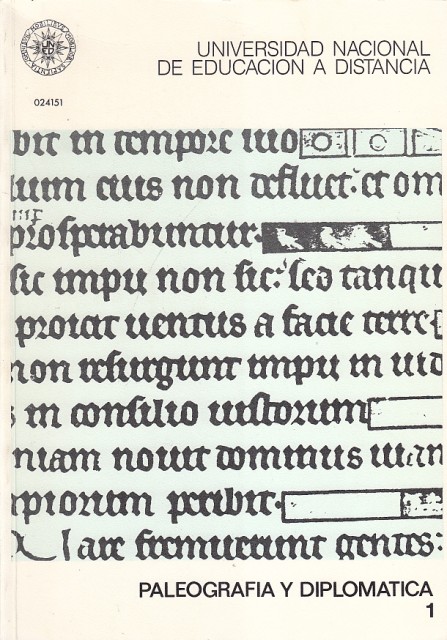 UNED
UNIVERSIDAD NACIONAL
DE EDUCACION A DISTANCIA
024151
bit in tempore suo
lium eius non defluet: et om
prosperabuntur.
sic impii non sic: sed tanqu
proicit uentus a facie terre
non resurgunt impii in iud
in consilio iustorum
niam nouit dominus uiam
mpiorum peribit.
Quare fremuerunt gentes:
PALEOGRAFIA Y DIPLOMATICA
1